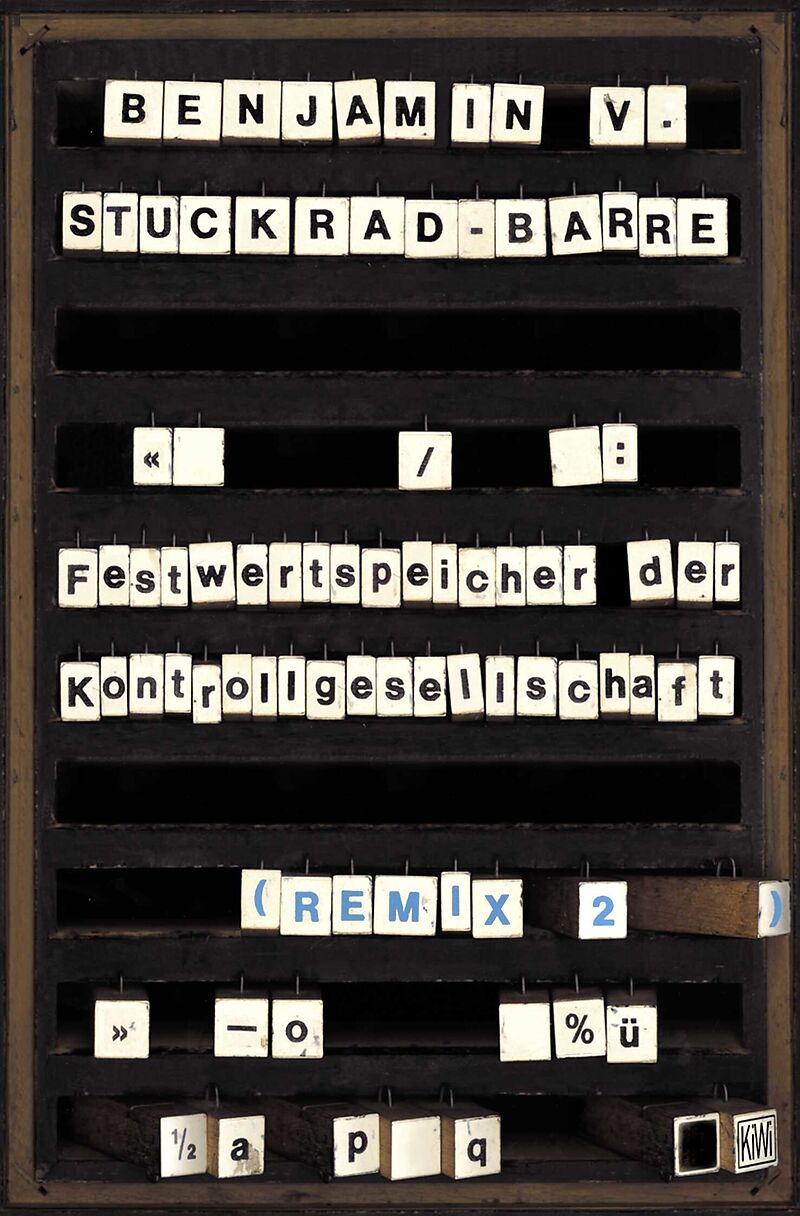 BENJAMIN V.
STUCKRAD-BARRE
« / :
Festwertspeicher der
Kontrollgesellschaft
(REMIX 2)
» — o % ü
½ a p q KiWi